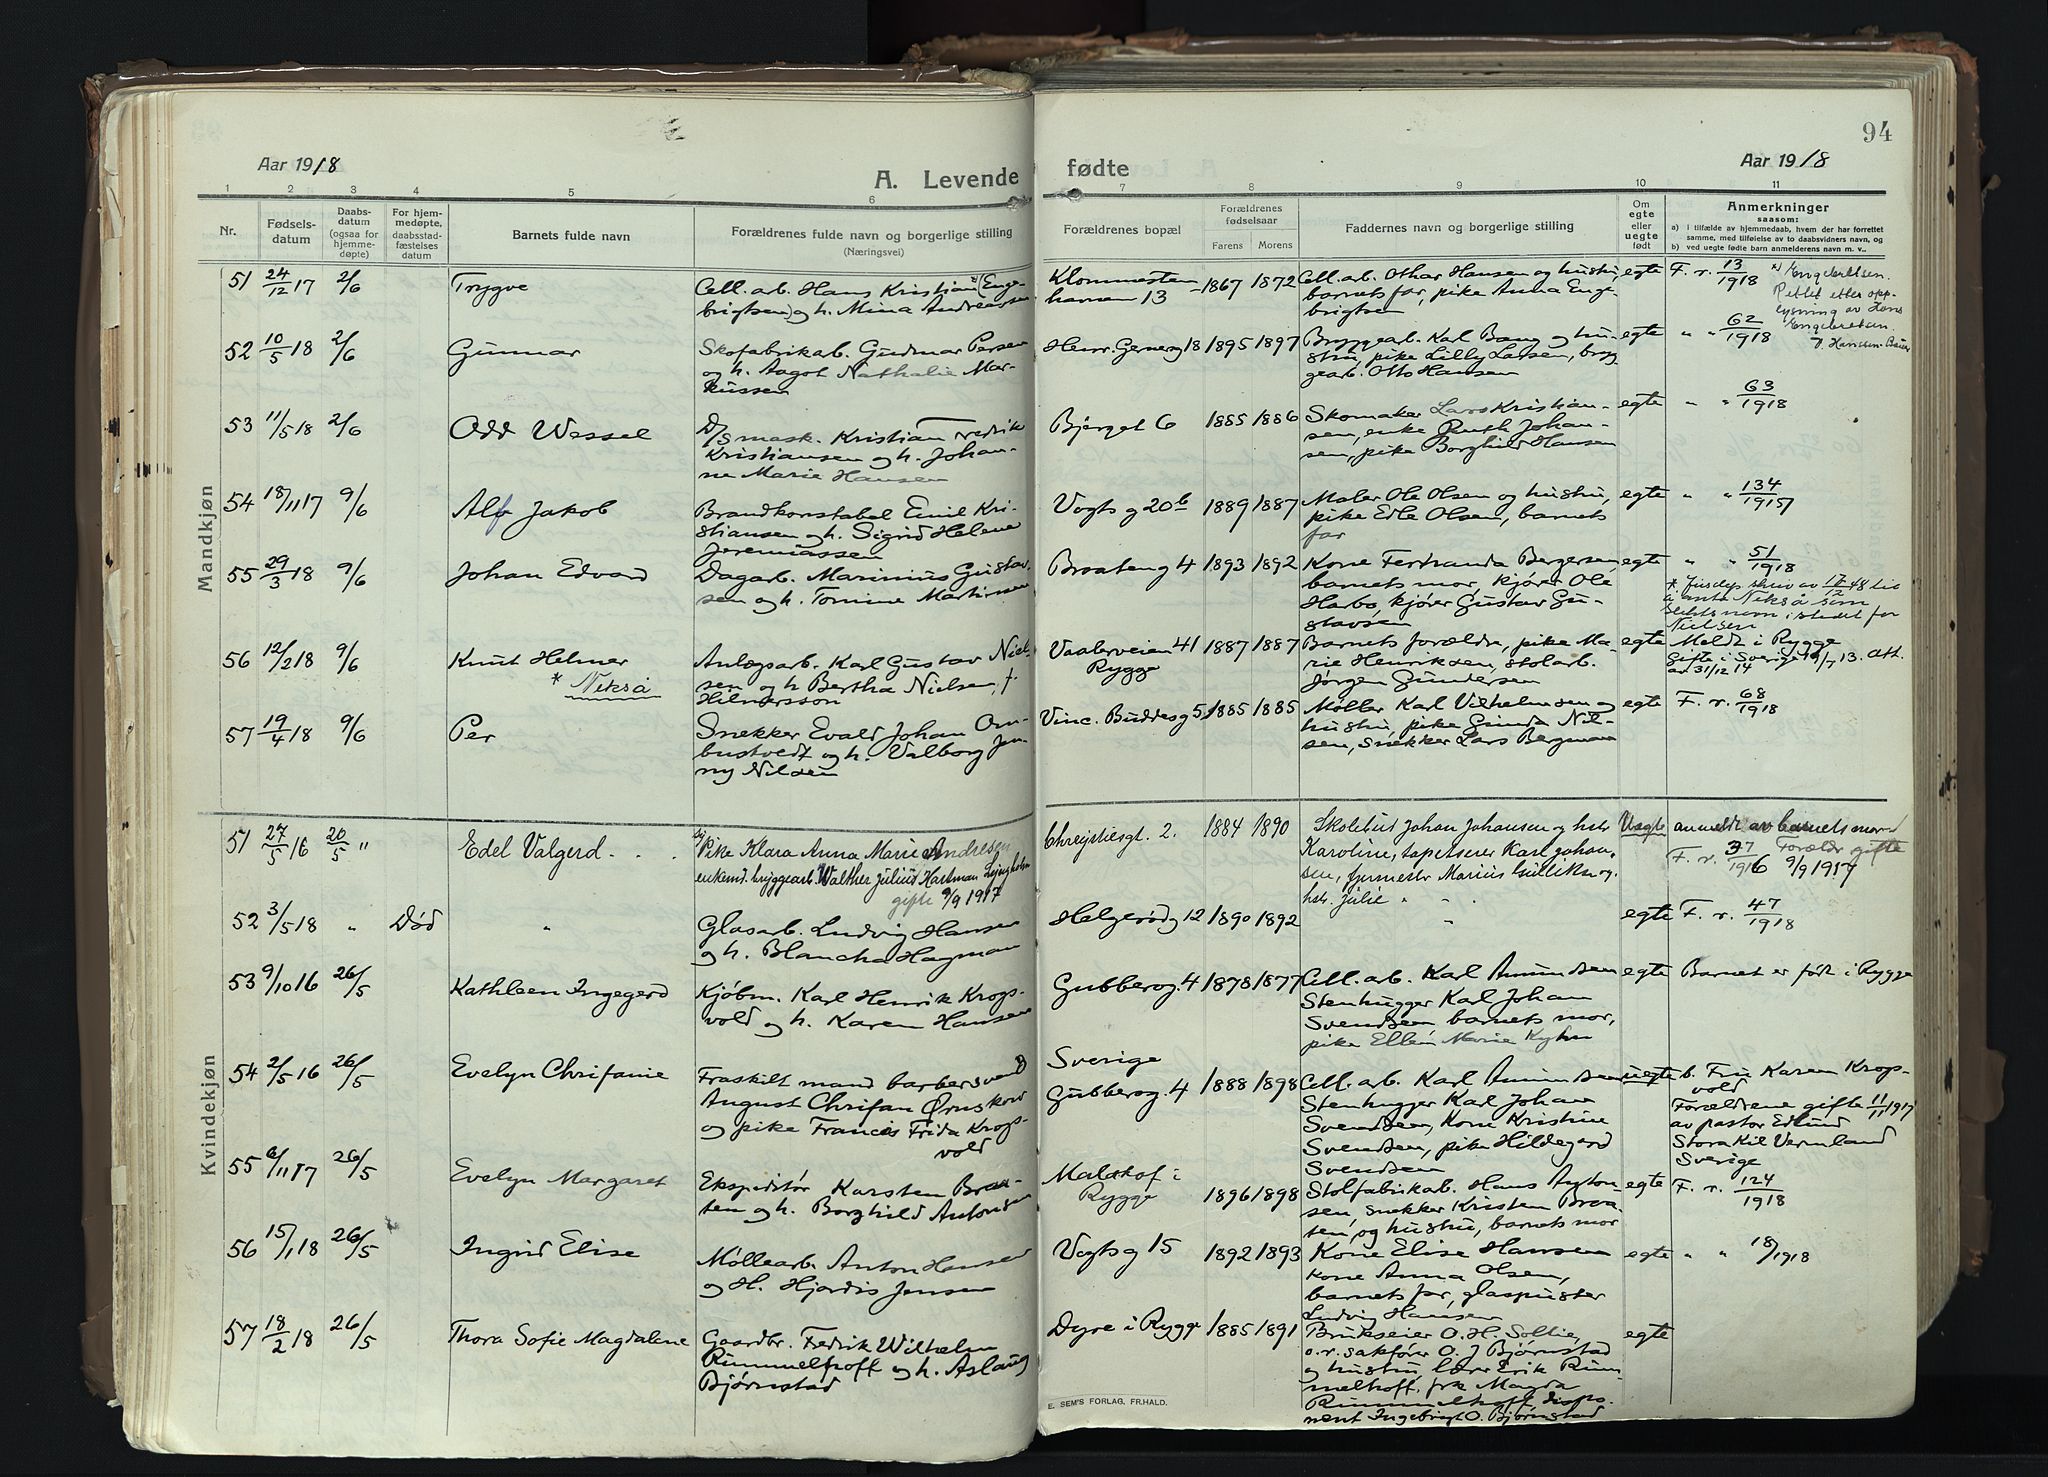 94
Aar 1918
A. Levende
fødte
Aar 1918
1 2 3 4 5 6 7 8 9 10 11
Nr.
Fødsels-
datum
Daabs-
datum
(ogsaa for
hjemme-
døpte)
For hjem-
medøpte,
daabsstad-
fæstelses
datum
Barnets fulde navn
Forældrenes fulde navn og borgerlige stilling
(Næringsvei)
Forældrenes bopæl
Forældrenes
fødselsaar
Farens Morens
Faddernes navn og borgerlige stilling
Om
egte
eller
uegte
født
Anmerkninger
saasom:
a) i tilfælde av hjemmedaab, hvem der har forrettet
samme, med tilføielse av to daabsvidners navn, og
b) ved uegte fødte barn anmelderens navn m. v..
Mandkjøn
51 24/12 17 2/6 Trygve
Cell. arb. Hans Kristian *(Enge-
brigtsen) og h. Mina Andreassen
Klommesten
havnen 13
1867 1872
Cell. arb. Othar Hansen og hustru,
barnets far, pike Anna Enge-
brigtsen
egte F. r. 13/1918
*) Engebretsen.
Rettet etter opp-
lysning av Hans
Engebretsen.
52 10/5 18 2/6 Gunnar
Skofabrikab. Gudmar Persen
og h. Aagot Nathalie Mar-
kussen
Henr. Gerners g 18 1895 1897
Bryggearb. Karl Bang og hu-
stru, pike Lilly Larsen, bryg-
gearb. Otto Hansen
egte " " 62/1918
53 11/5 18 2/6 Odd Wessel
D/S mask. Kristian Fredrik
Kristiansen og h. Johan-
ne Marie Hansen
Bjerget 6 1885 1886
Skomaker Lars Kristian-
sen, enke Ruth Johan-
sen, pike Borghild Hansen
egte " " 63/1918
54 18/11 17 9/6 Alf Jakob
Brandkonstabel Emil Kri-
stiansen og h. Sigrid Helene
Jeremiassen
Vogts g 20b 1889 1887
Maler Ole Olsen og hustru,
pike Edle Olsen, barnets
far
egte " " 134/1917
55 29/3 18 9/6 Johan Edvard
Dagarb. Marinius Gustav-
sen og h. Tomine Martinsen
Braaten g 4 1893 1892
Kone Fernanda Bergersen,
barnets mor, kjører Ole
Harbo, kjører Gustav Gu-
stavsen
egte " " 51/1918
* Jusdep. skriv av 17/12 48 til
å anta Nekså som
slektsnavn istedet for
Nielsen
56 12/2 18 9/6 Knut Helmer
* Nekså
Anlægsarb. Karl Gustav Niel-
sen og h. Bertha Nielsen, f.
Hilmersson
Vaalerveien 41
Rygge
1887 1887
Barnets forældre, pike Ma-
rie Henriksen, stolarb.
Jørgen Gundersen
egte Meldt i Rygge
Gifte i Sverige 19/7 13. Att.
av 31/12 14
57 19/4 18 9/6 Per
Snekker Evald Johan Om-
bustvedt og h. Valborg Jen-
ny Nilsen
Vinc. Buddes g 5 1885 1885
Møller Karl Vilhelmsen og
hustru, pike Gunda Nil-
sen, snekker Lars Bergman
egte F. r. 68/1918
Kvindekjøn
51 27/5 16 20/5 " Edel Valgerd
Pike Klara Anna Marie Andresen
enkemd. bryggearb. Walther Julius Hartman Ljungholm
gifte 9/9 1917
Chrystiesgt. 2. 1884 1890
Skolebud Johan Johansen og hstr.
Karoline, tapetserer Karl Johan-
sen, fyrmestr. Marius Gulliksen og
hstr. Julie
Uegte anmeldt av barnets mor
F. r. 37/1916 Forældr. gifte
9/9 1917
52 3/5 18 " Død "
Glasarb. Ludvig Hansen
og h. Blancha Hagman
Helgerød g 12 1890 1892 "
egte F. r. 47/1918
53 9/10 16 26/5 Kathleen Ingegerd
Kjøbm. Karl Henrik Krogs-
vold og h. Karen Hansen
Gubberog. 4 1878 1877
Cell. arb. Karl Amundsen
Stenhugger Karl Johan
Svendsen barnets mor,
pike Ellen Marie
egte Barnet er født i Rygge
54 2/5 16 26/5 Evelyn Chrifanie
Fraskilt mand barbersvend
August Chrifan Ørnskow
og pike Francis Frida Krogs-
vold
Sverige
Gubberog. 4
1888 1898
Cell. arb. Karl Amundsen
Stenhugger Karl Johan
Svendsen, Kone Kristine
Svendsen, pike Hildegard
Svendsen
uegte b. Fru Karen Krogs-
vold
Forældrene gifte 11/11 1917
av pastor Edlund
Stora Kil Vermland
Sverige
55 6/11 17 26/5 Evelyn Margaret
Ekspeditør Karsten Braa-
ten og h. Borghild Antonsen
Malakof i
Rygge
1896 1898
Stolfabrikab. Hans Anton-
sen, snekker Kristen Braa-
ten og hustru, barnets mor
egte F. r. 124/1918
56 15/1 18 26/5 Ingrid Elise
Møllearb. Anton Hansen
og H. Hjørdis Jensen
Vogts g 15 1892 1893
Kone Elise Hansen
kone Anna Olsen,
barnets far, glaspuster
Ludvig Hansen
egte " " 18/1918
57 18/2 18 26/5 Thora Sofie Magdalene
Gaardbr. Fredrik Wilhelm
Rummelhoff og h. Aslaug
Bjørnstad
Dyre i Rygge 1885 1891
Brukseier O. H. Soltie,
o.r. sakfører O. J Bjørnstad
og hustru, lærer Erik Rum-
melhoff, frk Magda
Rummelhoff, dispo-
nent Ingebrigt O. Bjørnstad
egte
E. SEM'S FORLAG, FR.HALD.